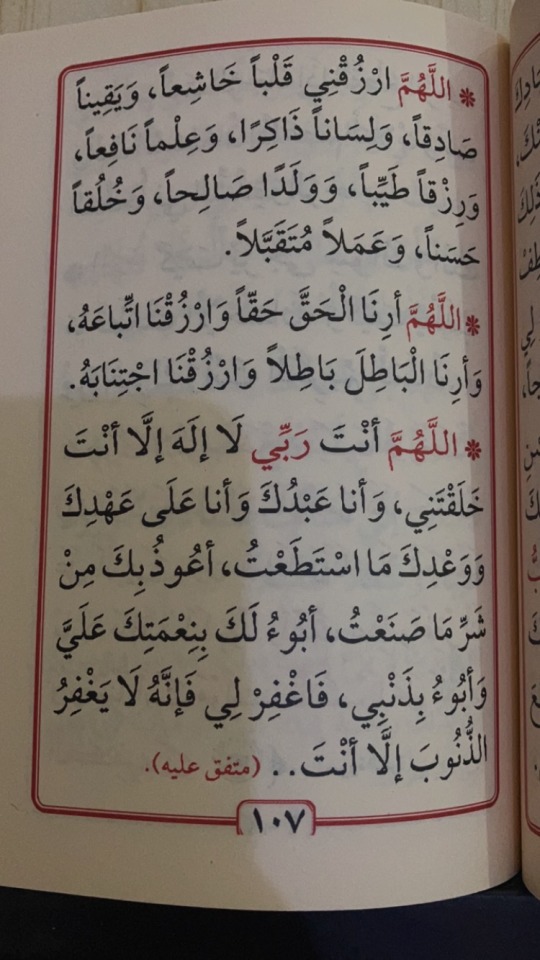 * اللَّهُمَّ ارْزُقْنِي قَلْباً خَاشِعاً، وَيَقِيناً
صَادِقاً، وَلِسَاناً ذَاكِرًا، وَعِلْماً نَافِعاً،
وَرِزْقاً طَيِّباً، وَوَلَدًا صَالِحاً، وَخُلُقاً
حَسَناً، وَعَمَلاً مُتَقَبَّلاً.
* اللَّهُمَّ أرِنَا الْحَقَّ حَقّاً وَارْزُقْنَا اتِّباعَهُ،
وَأرِنَا الْبَاطِلَ بَاطِلاً وَارْزُقْنَا اجْتِنَابَهُ.
* اللَّهُمَّ أنْتَ رَبِّي لَا إلَهَ إلَّا أنْتَ
خَلَقْتَنِي، وَأنا عَبْدُكَ وَأنا عَلَى عَهْدِكَ
وَوَعْدِكَ مَا اسْتَطَعْتُ، أعُوذُ بِكَ مِنْ
شَرِّ مَا صَنَعْتُ، أبُوءُ لَكَ بِنِعْمَتِكَ عَلَيَّ
وَأبُوءُ بِذَنْبِي، فَاغْفِرْ لِي فَإنَّهُ لَا يَغْفِرُ
الذُّنُوبَ إلَّا أنْتَ.. (متفق عليه).
١٠٧